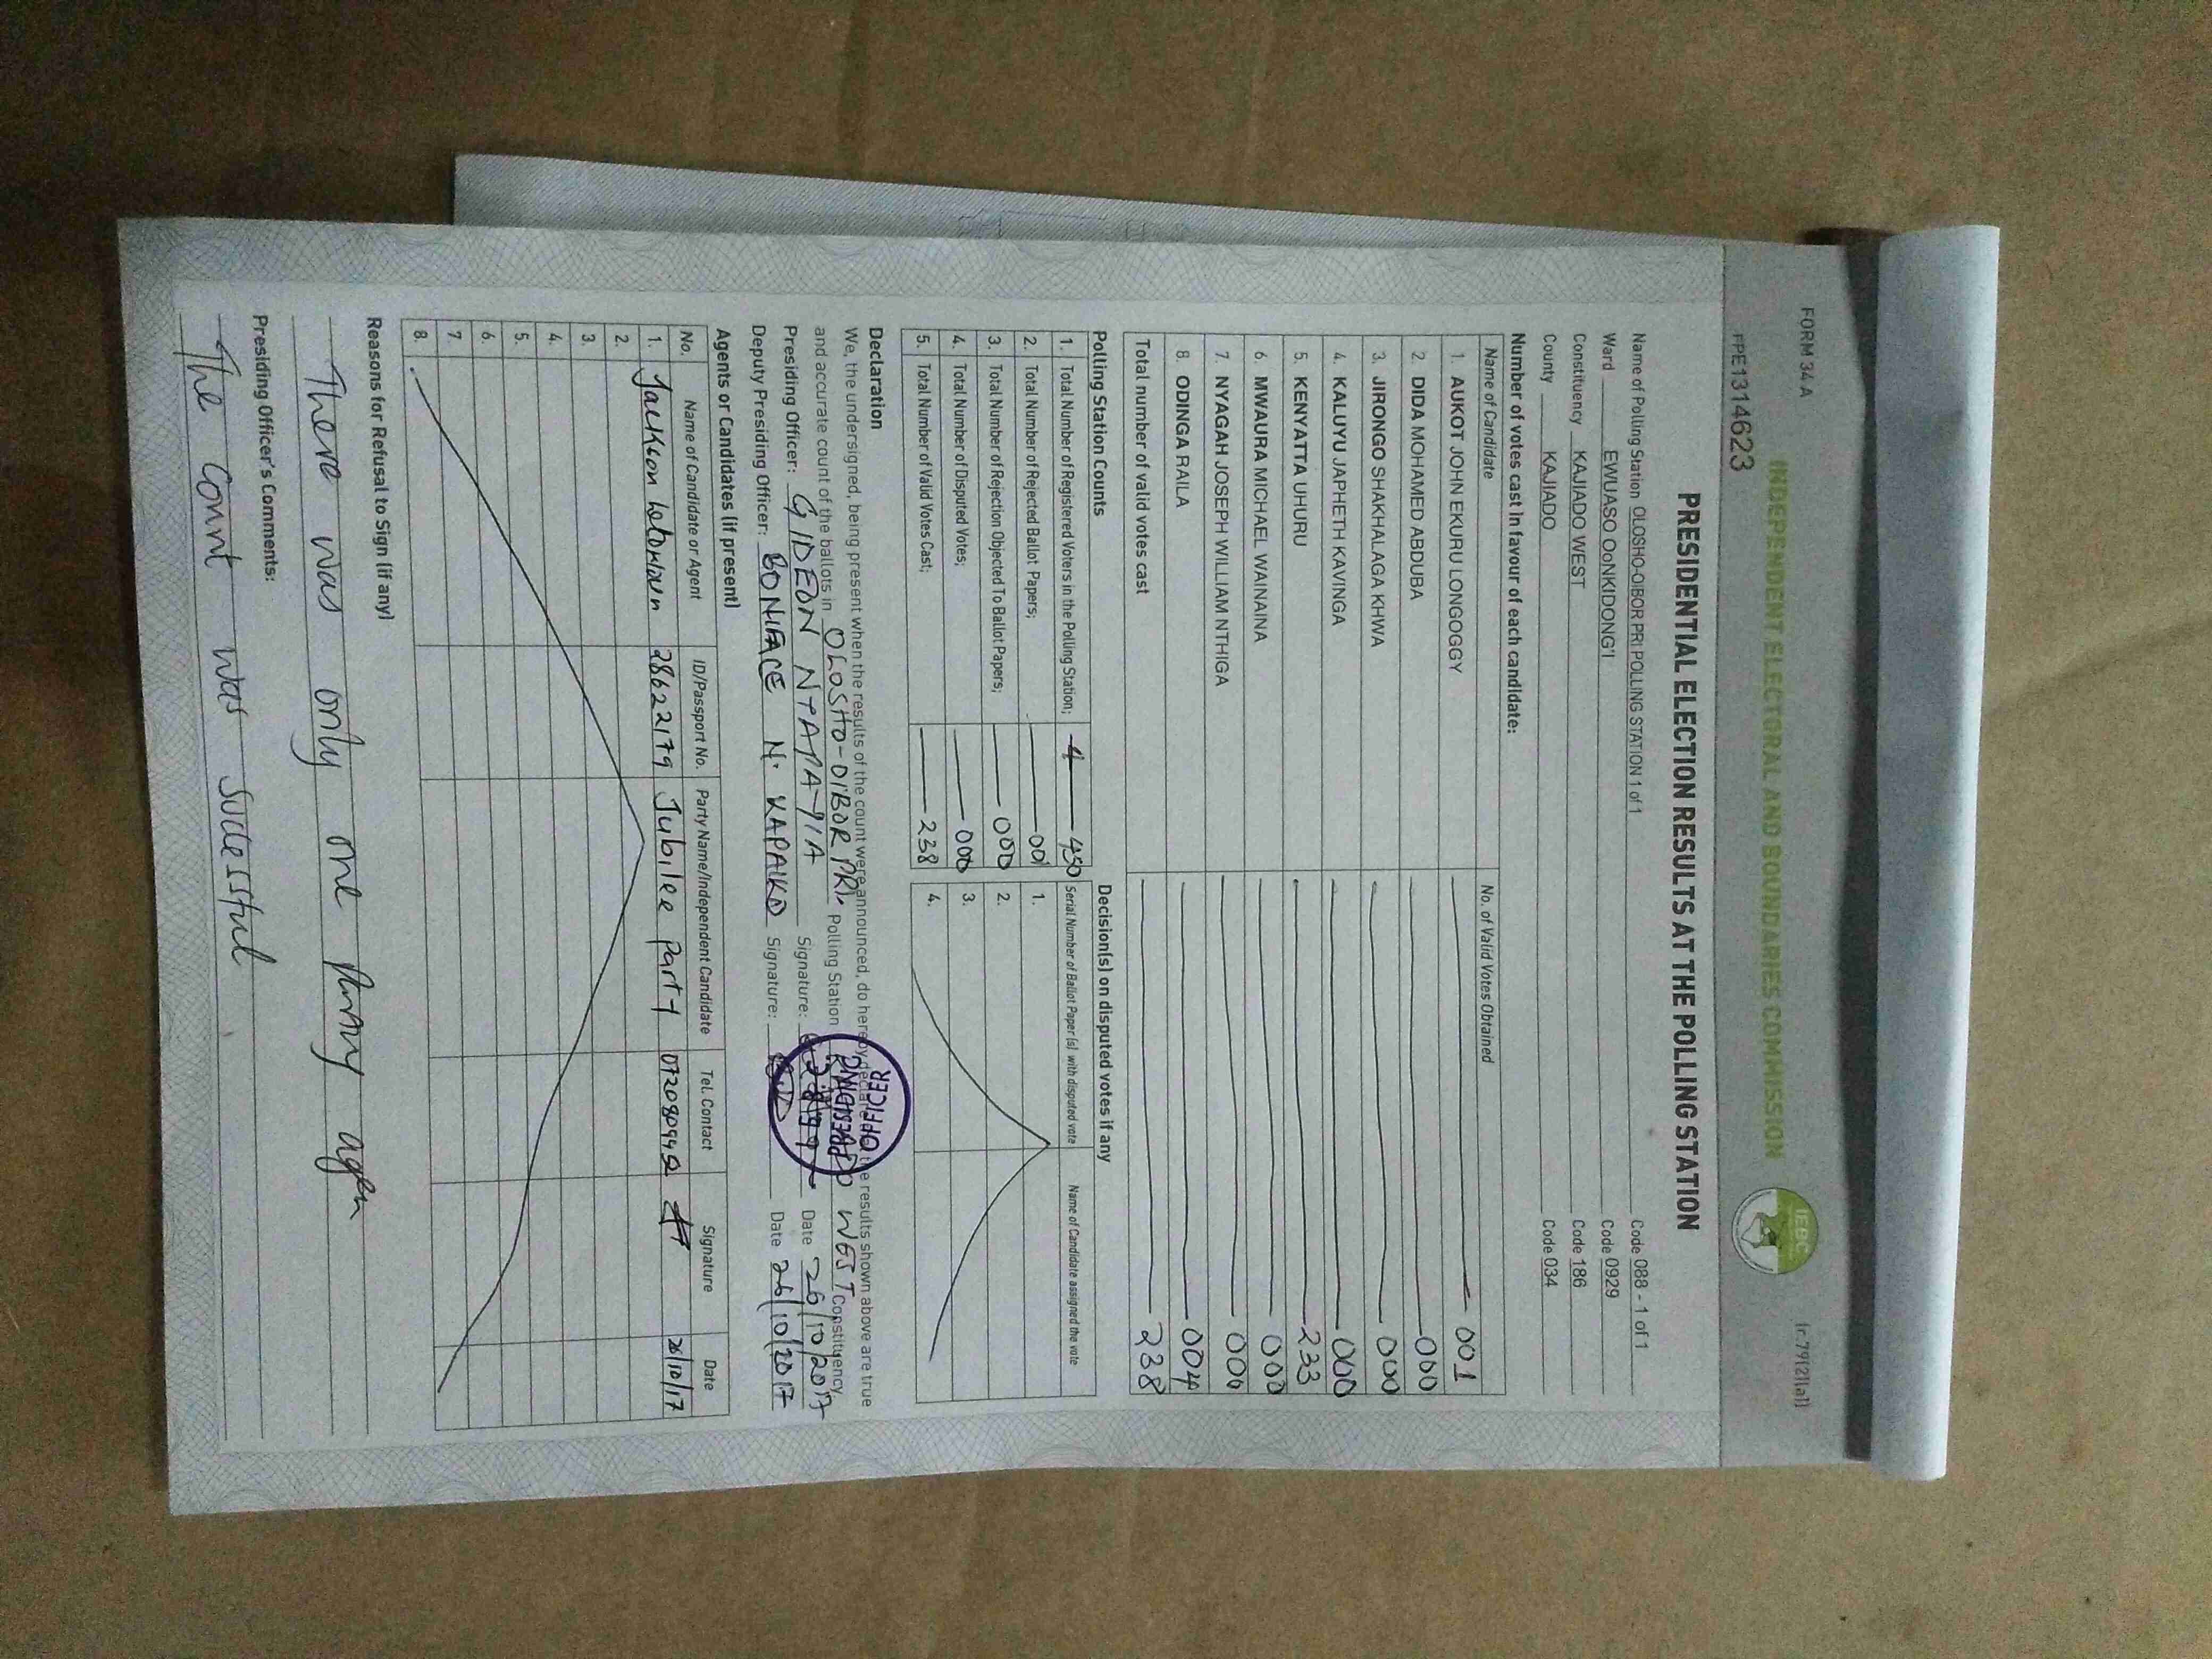 FORM 34 A
(r.79(2)(a))
INDEPENDENT ELECTORAL AND BOUNDARIES COMMISSION
IEBC
PPE1314623
PRESIDENTIAL ELECTION RESULTS AT THE POLLING STATION
Name of Polling Station OLOSHO-OIBOR PRI POLLING STATION 1 of 1 Code 088 - 1 of 1
Ward EWUASO OoNKIDONG'I Code 0929
Constituency KAJIADO WEST Code 186
County KAJIADO Code 034
Number of votes cast in favour of each candidate:
Name of Candidate No. of Valid Votes Obtained
1. AUKOT JOHN EKURU LONGOGGY 001
2. DIDA MOHAMED ABDUBA 000
3. JIRONGO SHAKHALAGA KHWA 000
4. KALUYU JAPHETH KAVINGA 000
5. KENYATTA UHURU 233
6. MWAURA MICHAEL WAINAINA 000
7. NYAGAH JOSEPH WILLIAM NTHIGA 000
8. ODINGA RAILA 004
Total number of valid votes cast 238
Polling Station Counts Decision(s) on disputed votes if any
1. Total Number of Registered Voters in the Polling Station; 4 450 Serial Number of Ballot Paper (s) with disputed vote Name of Candidate assigned the vote
2. Total Number of Rejected Ballot Papers; 1.
3. Total Number of Rejection Objected To Ballot Papers; 000 2.
4. Total Number of Disputed Votes; 000 3.
5. Total Number of Valid Votes Cast; 238 4.
Declaration
We, the undersigned, being present when the results of the count were announced, do hereby declare the results shown above are true
and accurate count of the ballots in OLOSHO-OIBOR PRI. Polling Station WEST Constituency
Presiding Officer: GIDEON Signature: Date 26/10/2017
Deputy Presiding Officer: BONIFACE N. KAPAIKO Signature: Date 26/10/2017
PRESIDING
OFFICER
Agents or Candidates (if present)
No. Name of Candidate or Agent ID/Passport No. Party Name/Independent Candidate Tel. Contact Signature Date
1. Jackson 28622179 Jubilee party 26/10/17
2.
3.
4.
5.
6.
7
8.
Reasons for Refusal to Sign (if any)
There was only one party agen
Presiding Officer's Comments:
The count was sucessful